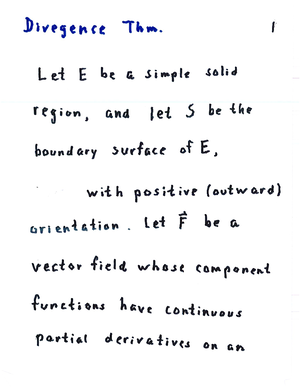 Divegence Thm. 1
Let E be a simple solid
region, and let S be the
boundary surface of E,
with positive (outward)
orientation. Let F⃗ be a
vector field whose component
functions have continuous
partial derivatives on an